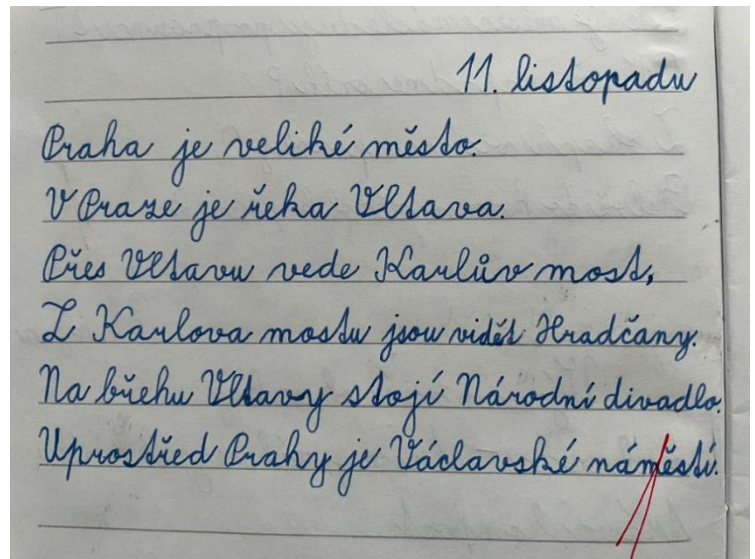 11. listopadu
Praha je veliké město.
V Praze je řeka Vltava.
Přes Vltavu vede Karlův most.
Z Karlova mostu jsou vidět Hradčany.
Na břehu Vltavy stojí Národní divadlo.
Uprostřed Prahy je Václavské náměstí.